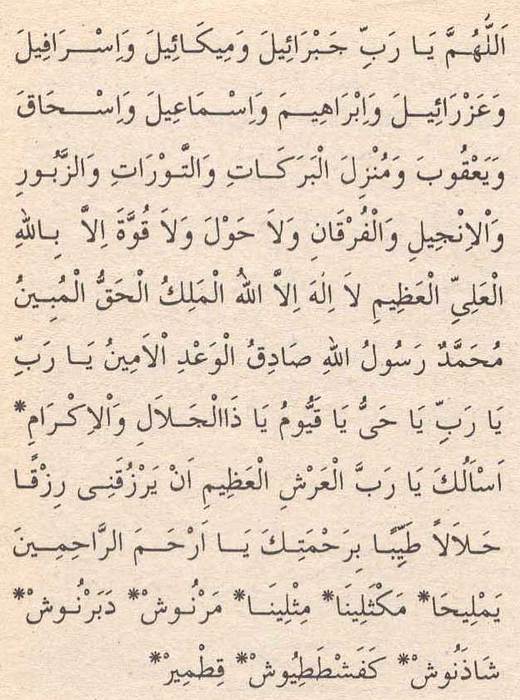 اَللّٰهُمَّ يَا رَبِّ جَبْرَائِيلَ وَمِيكَائِيلَ وَاِسْرَافِيلَ
وَعَزْرَائِيلَ وَاِبْرَاهِيمَ وَاِسْمَاعِيلَ وَاِسْحَاقَ
وَيَعْقُوبَ وَمُنْزِلَ الْبَرَكَاتِ وَالتَّوْرَاتِ وَالزَّبُورِ
وَاْلاِنْجِيلِ وَالْفُرْقَانِ وَلاَ حَوْلَ وَلاَ قُوَّةَ اِلاَّ بِاللهِ
الْعَلِيِّ الْعَظِيمِ لاَ اِلٰهَ اِلاَّ اللهُ الْمَلِكُ الْحَقُّ الْمُبِينُ
مُحَمَّدٌ رَسُولُ اللهِ صَادِقُ الْوَعْدِ اْلاَمِينُ يَا رَبِّ
يَا رَبِّ يَا حَىُّ يَا قَيُّومُ يَا ذَاالْجَلاَلِ وَاْلاِكْرَامِ*
اَسْاَلُكَ يَا رَبَّ الْعَرْشِ الْعَظِيمِ اَنْ يَرْزُقَنِى رِزْقًا
حَلاَلاً طَيِّبًا بِرَحْمَتِكَ يَا اَرْحَمَ الرَّاحِمِينَ
يَمْلِيخَا* مَكْثَلِينَا* مِثْلِينَا* مَرْنُوشْ* دَبَرْنُوشْ*
شَاذَنُوشْ* كَفَشْطَطِيُوشْ* قِطْمِيرْ*